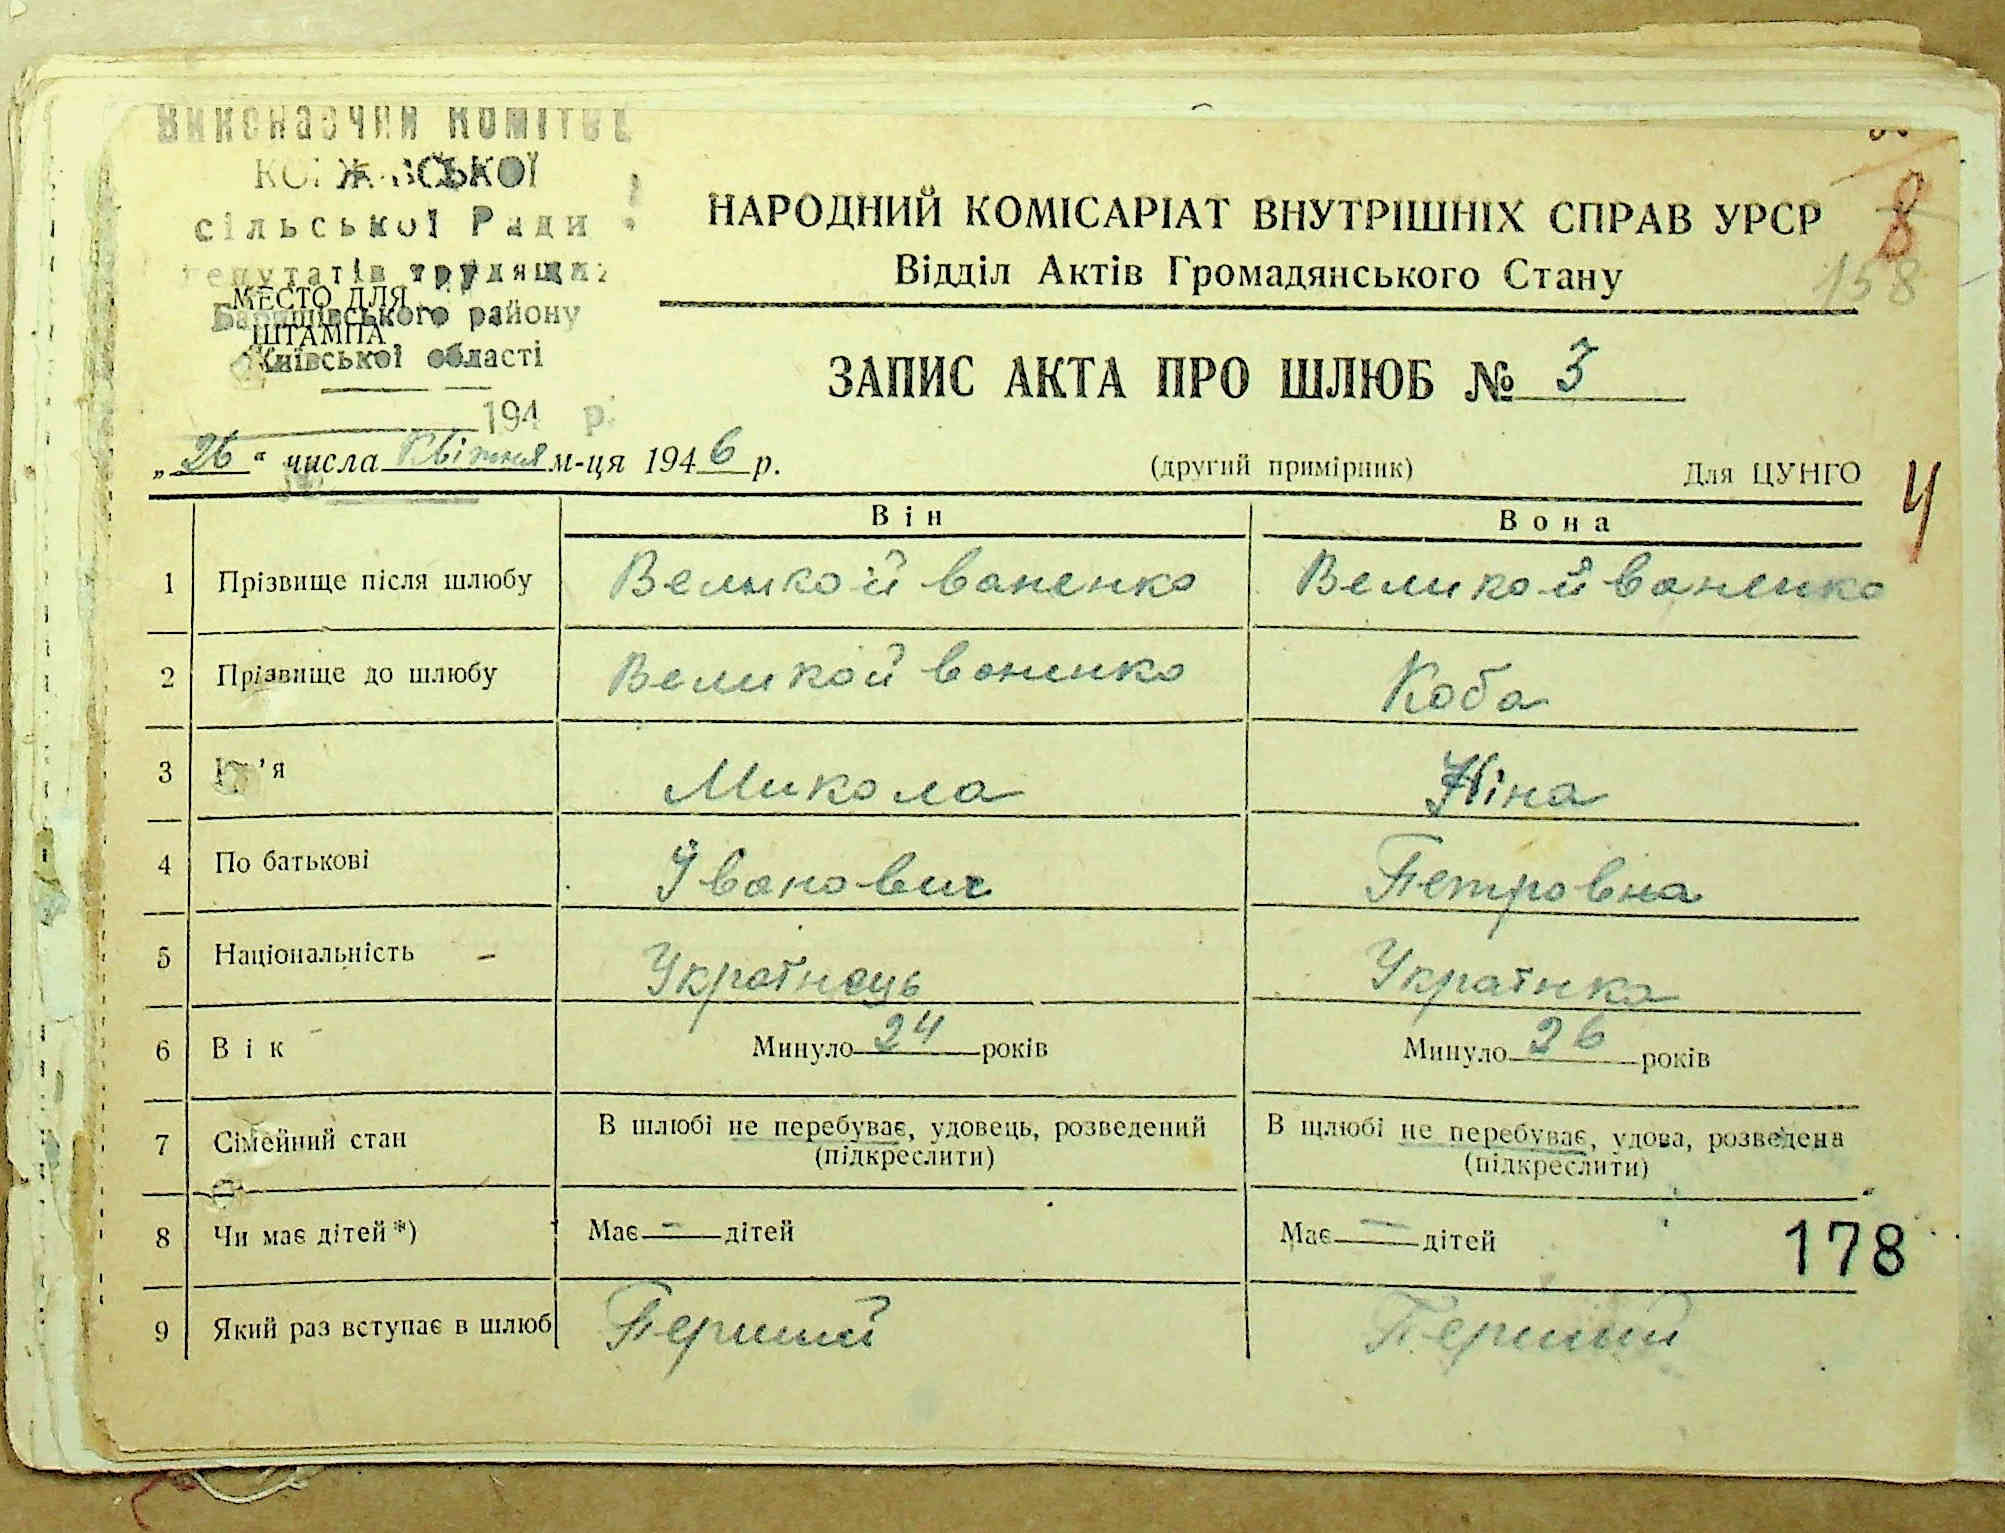 Виконавчий комітет
КОРЖІВСЬКОЇ
сільської Ради
депутатів трудящих
МЕСТО ДЛЯ
Баришівського району
ШТАМПА
Київської області
194 р.
НАРОДНИЙ КОМІСАРІАТ ВНУТРІШНІХ СПРАВ УРСР
Відділ Актів Громадянського Стану
8
158
ЗАПИС АКТА ПРО ШЛЮБ № 3
„26“ числа Квітня м-ця 1946 р.
(другий примірник) Для ЦУНГО
Ч
Він Вона
1 Прізвище після шлюбу Великойваненко Великойваненко
2 Прізвище до шлюбу Великойваненко Коба
3 Ім’я Микола Ніна
4 По батькові Йванович Петровна
5 Національність - Українець Українка
6 Вік Минуло 24 років Минуло 26 років
7 Сімейний стан В шлюбі не перебуває, удовець, розведений В шлюбі не перебуває, удова, розведена
(підкреслити) (підкреслити)
8 Чи має дітей *) Має — дітей Має — дітей
178
9 Який раз вступає в шлюб Перший Перший